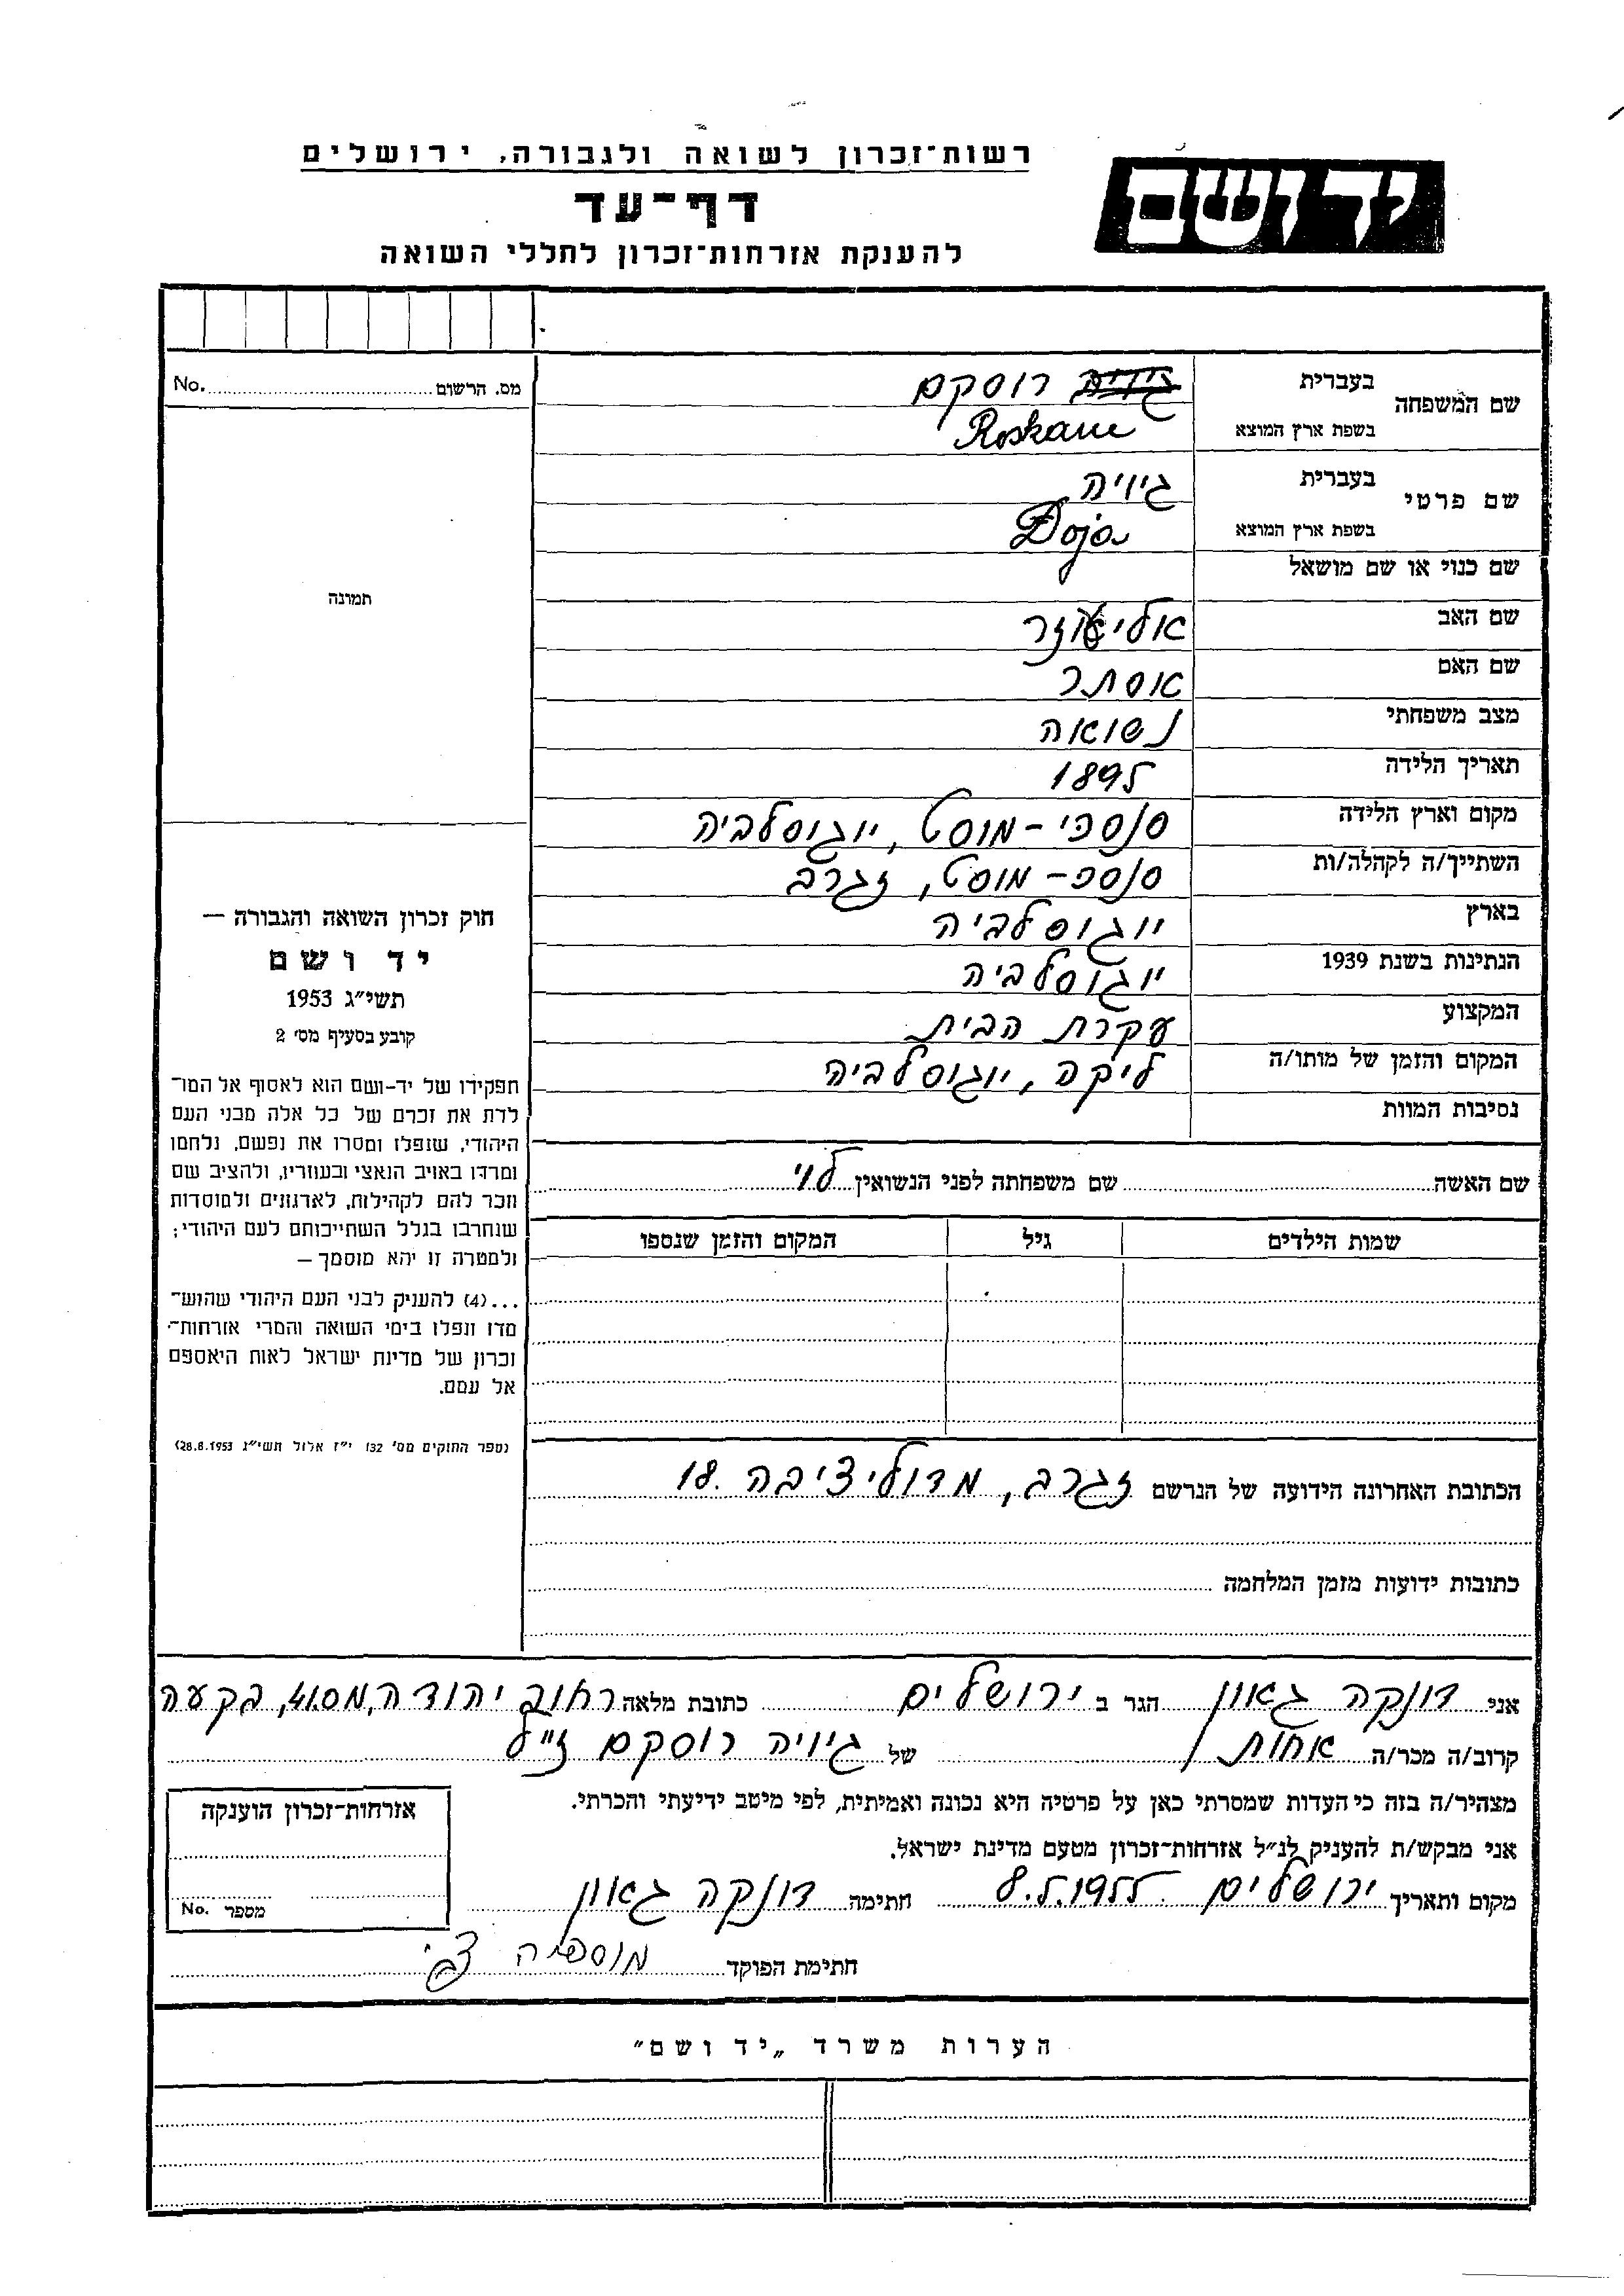 רשות־זכרון לשואה ולגבורה, ירושלים
יד ושם
דף־עד
להענקת אזרחות־זכרון לחללי השואה
מס. הרשום No.
תמונה
חוק זכרון השואה והגבורה —
יד ושם
תשי״ג 1953
קובע בסעיף מס׳ 2
תפקידו של יד-ושם הוא לאסוף אל המו־
לדת את זכרם של כל אלה מבני העם
היהודי, שנפלו ומסרו את נפשם, נלחמו
ומרדו באויב הנאצי ובעוזריו, ולהציב שם
וזכר להם לקהילות, לארגונים ולמוסדות
שנחרבו בגלל השתייכותם לעם היהודי;
ולמטרה זו יהא מוסמך —
...(4) להעניק לבני העם היהודי שהוש־
מדו ונפלו בימי השואה והמרי אזרחות־
זכרון של מדינת ישראל לאות היאספם
אל עמם.
(ספר החוקים מס׳ 132 י״ז אלול תשי״ג 28.8.1953)
שם המשפחה בעברית רוסקם
בשפת ארץ המוצא
שם פרטי בעברית גיויה
בשפת ארץ המוצא Doja
שם כנוי או שם מושאל
שם האב אליעזר
שם האם אסתר
מצב משפחתי נשואה
תאריך הלידה 1895
מקום וארץ הלידה סנסקי-מוסט, יוגוסלביה
השתייך/ה לקהלה/ות סנסק-מוסט, זגרב
בארץ יוגוסלביה
הנתינות בשנת 1939 יוגוסלביה
המקצוע עקרת הבית
המקום והזמן של מותו/ה ליקה, יוגוסלביה
נסיבות המוות
שם האשה שם משפחתה לפני הנשואין לוי
שמות הילדים גיל המקום והזמן שנספו
הכתובת האחרונה הידועה של הנרשם זגרב, מדוליציבה 18.
כתובות ידועות מזמן המלחמה
אני דונקה גאון הגר ב ירושלים כתובת מלאה רחוב יהודה, מס. 41, בקעה
קרוב/ה מכר/ה אחות של גיויה רוסקם ז״ל
מצהיר/ה בזה כי העדות שמסרתי כאן על פרטיה היא נכונה ואמיתית, לפי מיטב ידיעתי והכרתי.
אני מבקש/ת להעניק לנ״ל אזרחות־זכרון מטעם מדינת ישראל.
מקום ותאריך ירושלים 8.5.1955 חתימה דונקה גאון
חתימת הפוקד
אזרחות־זכרון הוענקה
מספר No.
הערות משרד „יד ושם״